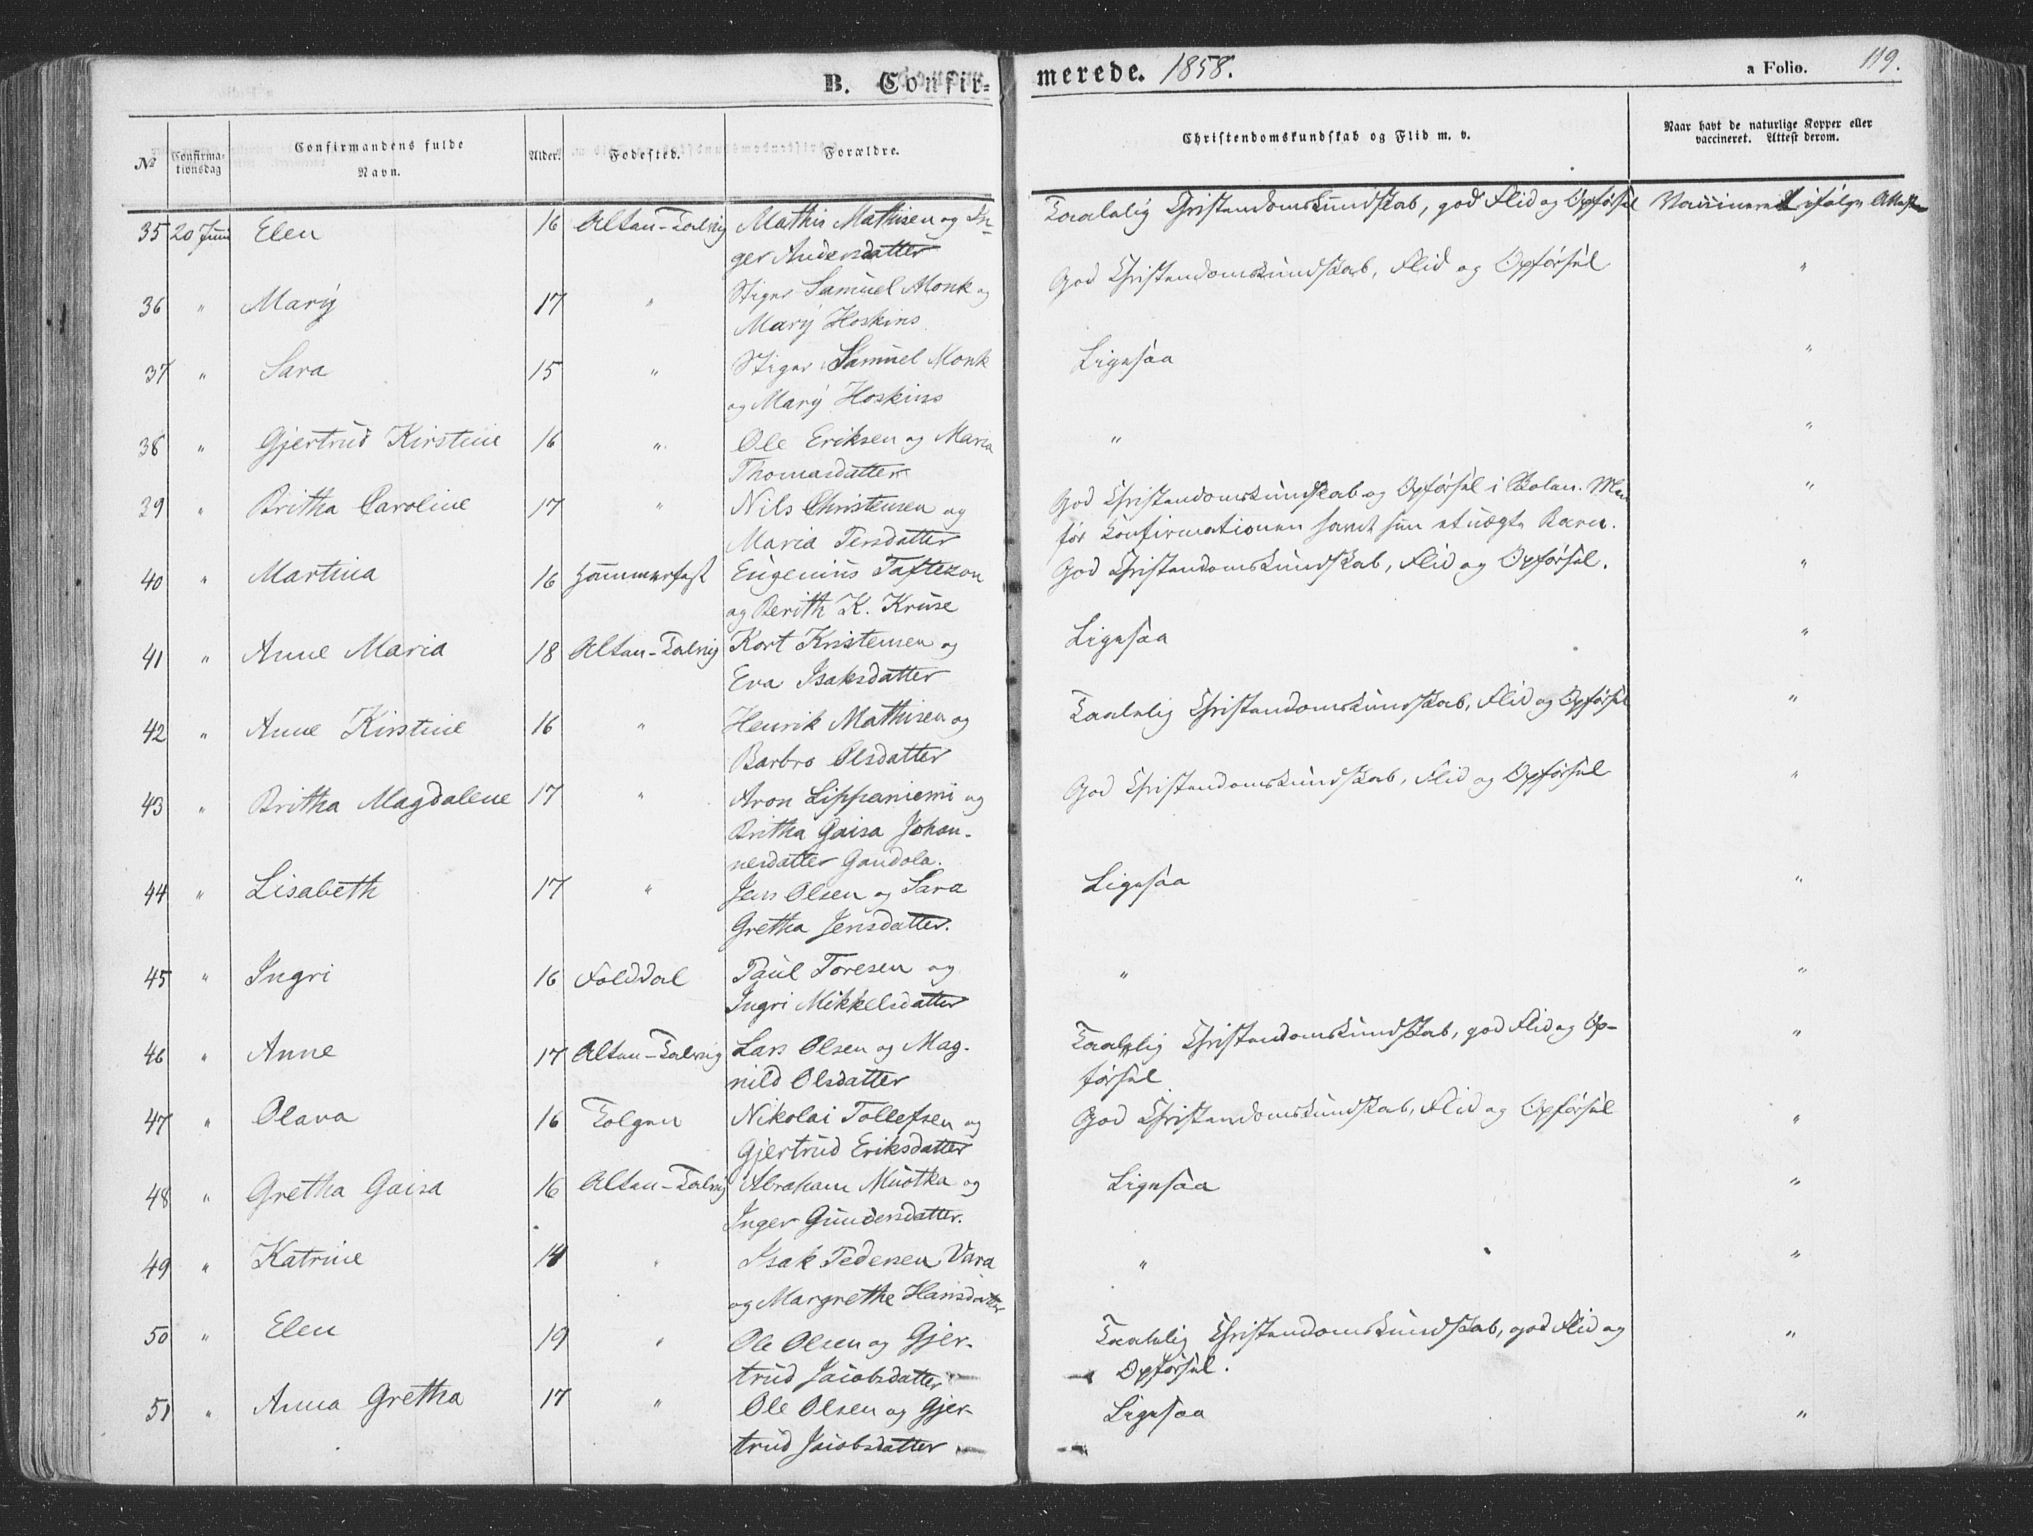 B. Confir= merede. 1858. a Folio. 119.
No Confirma-tionsdag Confirmandens fulde Navn. Alder. Fødested. Forældre. Christendomskundskab og Flid m. v. Naar havt de naturlige Kopper eller vaccineret. Attest derom.
35 20 Juni Elen 16 Alten-Talvig Mathis Mathisen og In- Taalelig Christendomskundskab, god Flid og Opførsel Vaccineret ifølge Attest
ger Andersdatter
36 " Mary 17 " Stiger Samuel Monk og God Christendomskundskab, Flid og Opførsel "
Mary Hoskins
37 " Sara 15 " Stiger Samuel Monk Ligesaa "
og Mary Hoskins
38 " Gjertrud Kirstine 16 " Ole Eriksen og Maria " "
Thomasdatter
39 " Britha Caroline 17 " Nils Christensen og God Christendomskundskab og Opførsel i Skolen. Men "
Maria Persdatter før Confirmationen havt hun et uægte Barn.
40 " Martina 16 Hammerfest Eugenius Taftezon God Christendomskundskab, Flid og Opførsel. "
og Berith K. Kruse
41 " Anne Maria 18 Alten-Talvig Kort Kristensen og Ligesaa "
Eva Isaksdatter
42 " Anne Kirstine 16 " Henrik Mathisen og Taalelig Christendomskundskab, Flid og Opførsel "
Barbro Olsdatter
43 " Britha Magdalene 17 " Aron Lippaniemi og God Christendomskundskab, Flid og Opførsel "
Britha Gaisa Johan-
nesdatter Gandola.
44 " Lisabeth 17 " Jens Olsen og Sara Ligesaa "
Gretha Jensdatter.
45 " Ingri 16 Folddal Paul Toresen og " "
Ingri Mikkelsdatter
46 " Anne 17 Alten-Talvig Lars Olsen og Mag- Taalelig Christendomskundskab, god Flid og Op- "
nild Olsdatter førsel
47 " Olava 16 Tolgen Nikolai Tollefsen og God Christendomskundskab, Flid og Opførsel "
Gjertrud Eriksdatter
48 " Gretha Gaisa 16 Alten-Talvig Abraham Muotka og Ligesaa "
Inger Gundersdatter.
49 " Katrine " Isak Pedersen Vara " "
og Margrethe Hansdatter
50 " Elen 19 " Ole Olsen og Gjer- Taalelig Christendomskundskab, god Flid og "
trud Jacobsdatter Opførsel.
51 " Anna Gretha 17 " Ole Olsen og Gjer- Ligesaa "
trud Jacobsdatter